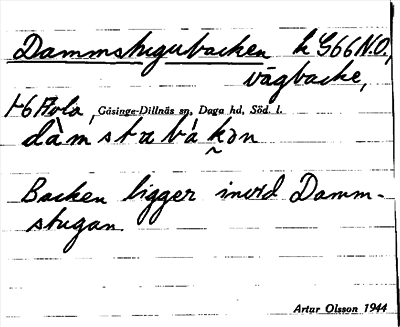 Dammstugubacken k G66 N.O.,
vägbacke,
Gåsinge-Dillnäs sn, Daga hd, Söd. l.
dàmstabákən
Backen ligger invid Damm-
stugan.
Artur Olsson 1944